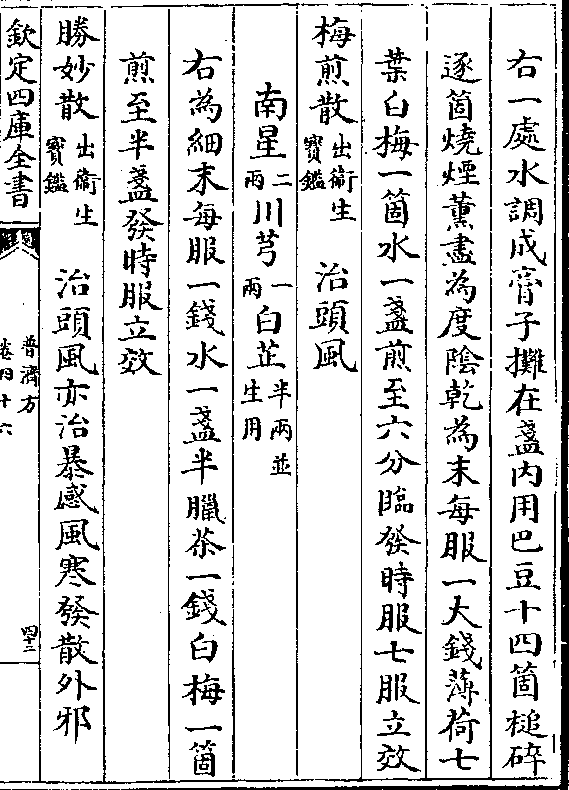 右一處水調成膏子攤在盞内用巴豆十四箇槌碎
逐箇燒煙薰盡為度陰乾為末每服一大錢薄荷七
葉白梅一箇水一盞煎至六分臨發時服七服立效
梅煎散出衞生寳鑑 治頭風
南星二兩川芎一兩白芷半兩並生用
右為細末每服一錢水一盞半臘茶一錢白梅一箇
煎至半盞發時服立效
勝妙散出衞生寳鑑 治頭風亦治暴感風寒發散外邪
欽定四庫全書
普濟方
卷四十六
四十二